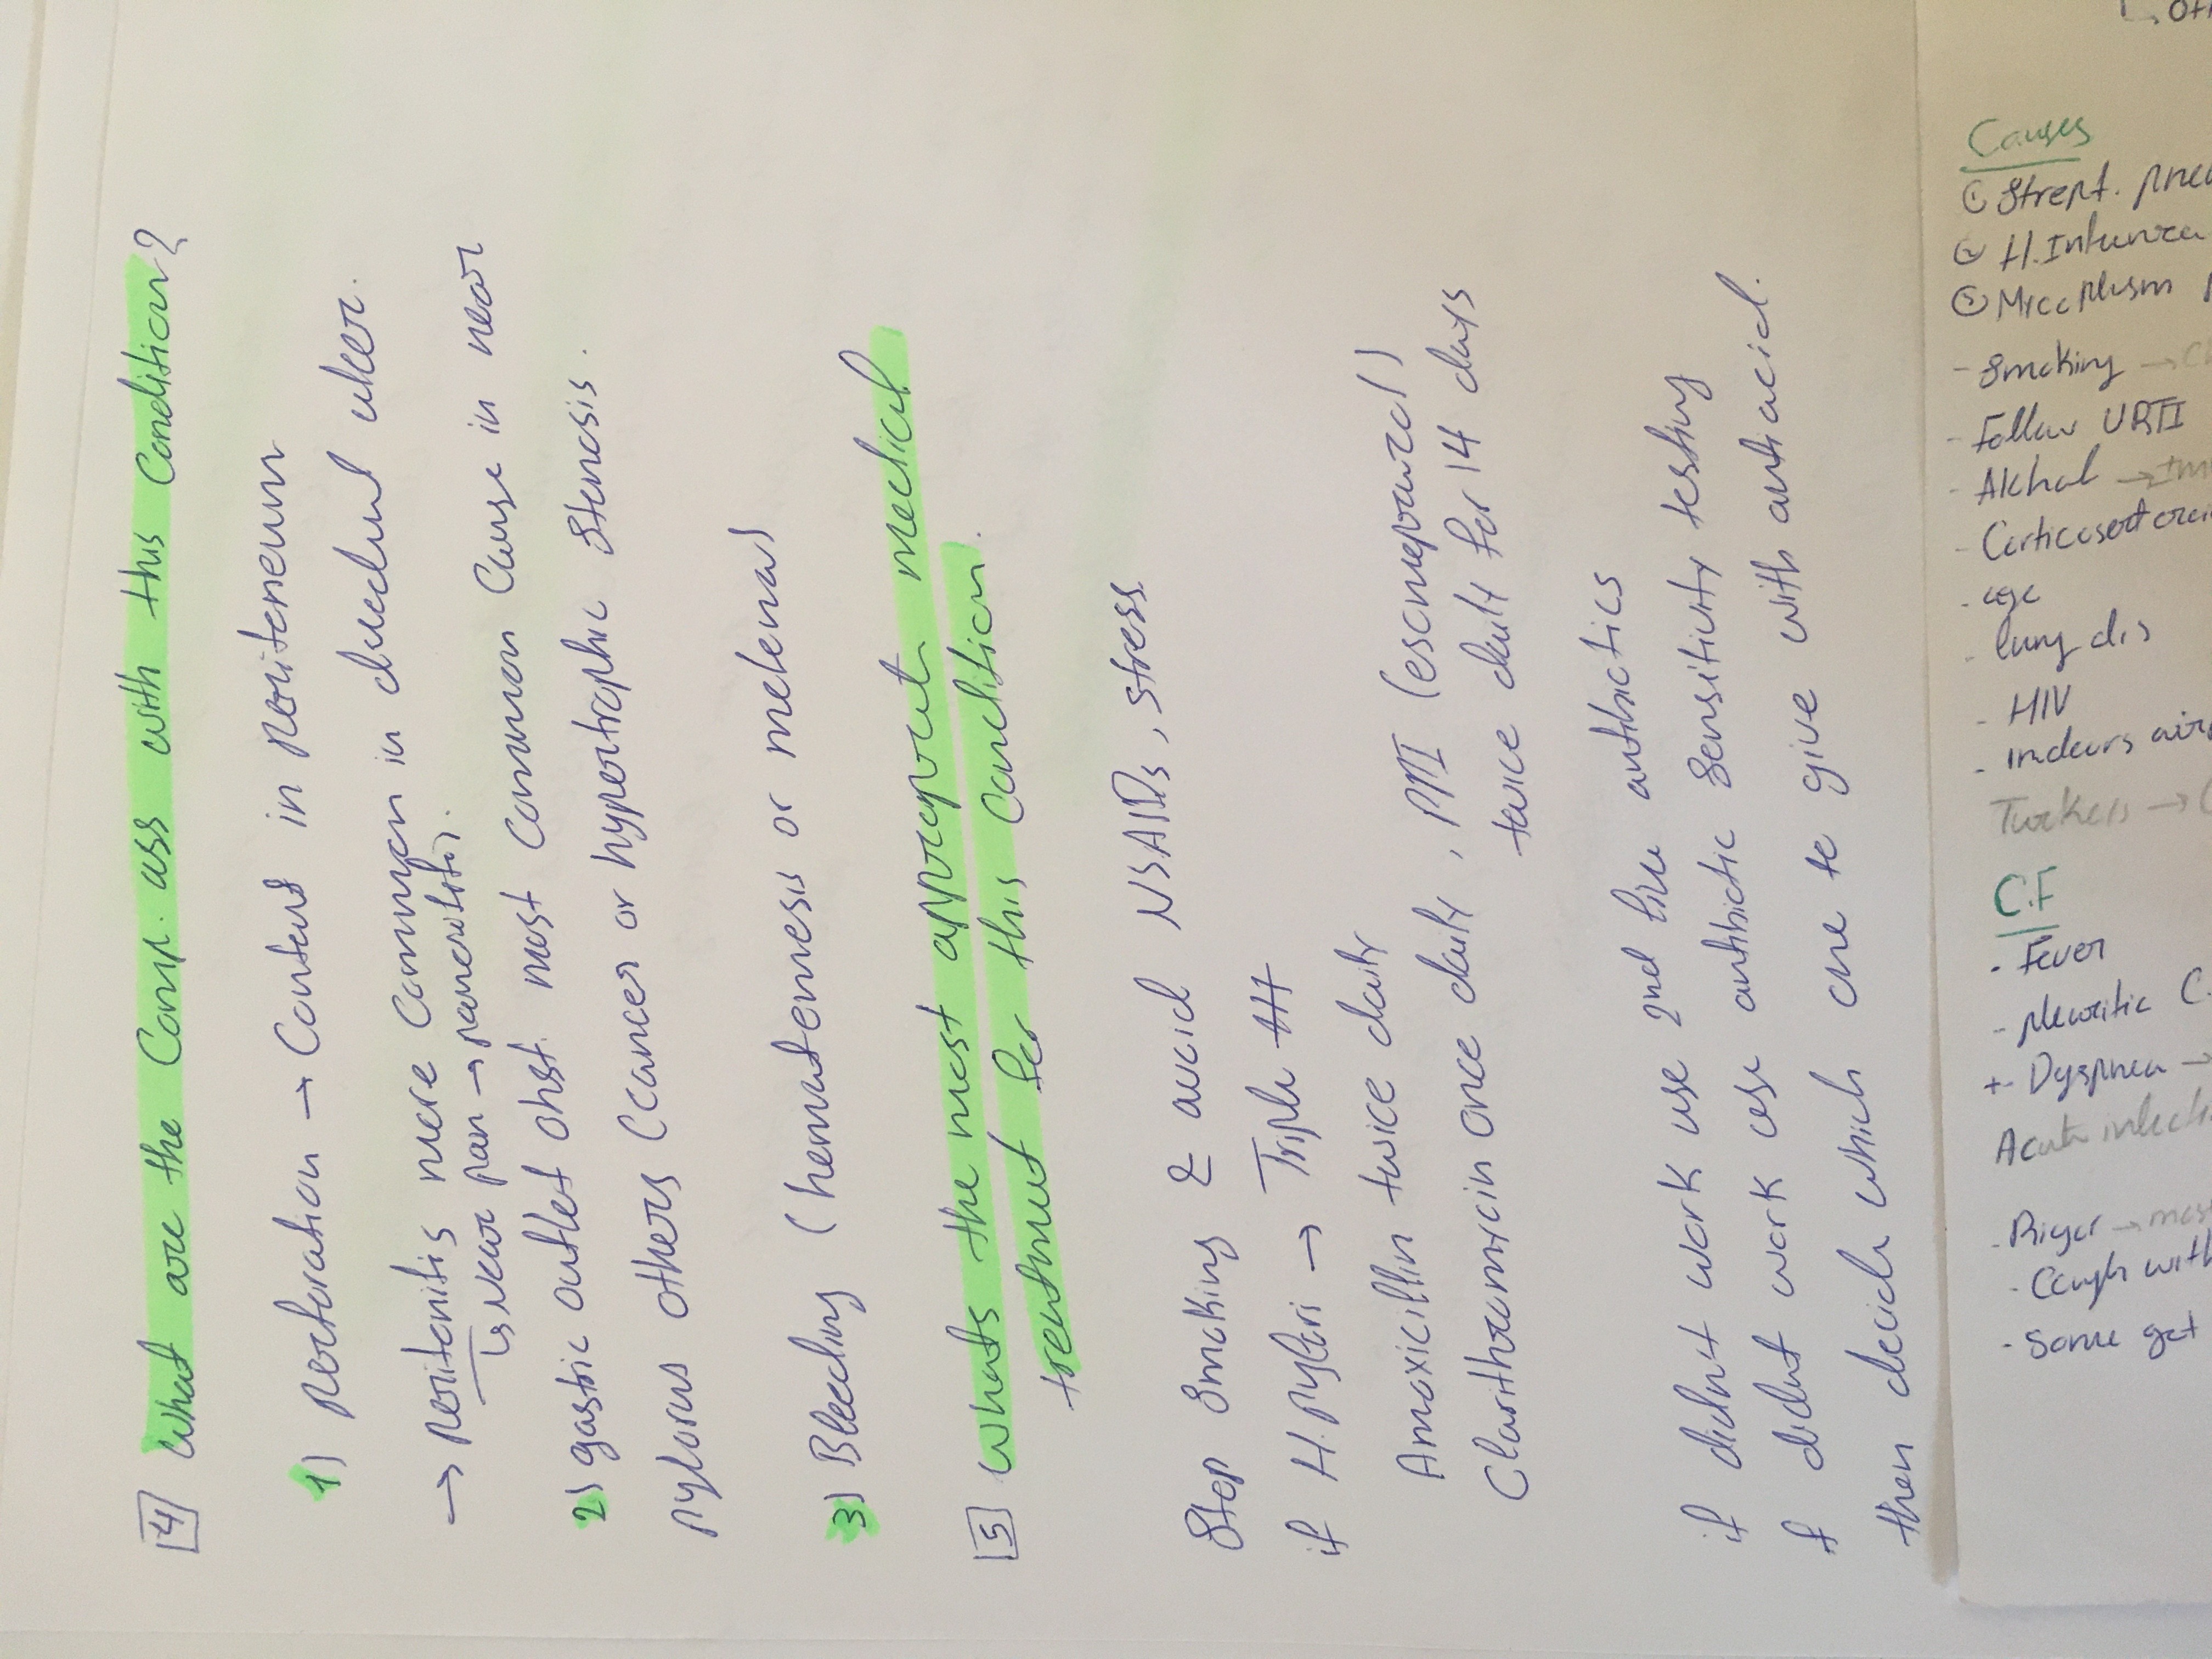 [4] What are the Comp. ass with this Condition?
1) Perforation → Content in Peritoneum
→ Peritonitis more Common in duodenal ulcer.
↳ near pan → pancreatitis.
2) gastric outlet obst. most Common Cause in near
pylorus others (Cancer or hypertrophic stenosis.
3) Bleeding (hematemesis or melena)
[5] whats the most appropriat medical
treatment for this Condition.
Stop Smoking & avoid NSAIDs, stress
if H. Pylori → Triple ttt
Amoxicillin twice daily
Clarithromycin once daily, PPI (esomeprazol)
twice daily for 14 days
if didnt work use 2nd line antibiotics
if didnt work use antibiotic Sensitivity testing
then decide which one to give with antiacid.
Causes
① Strept.
② H. Infunza
③
- Smoking →
- Follow URTI
- Alchol →
-
- age
- lung dis
- HIV
- indoors
C.F
- Fever
- pleuritic C.
+ Dyspnea →
Acute
- Rigor →
- Cough with
- Some get